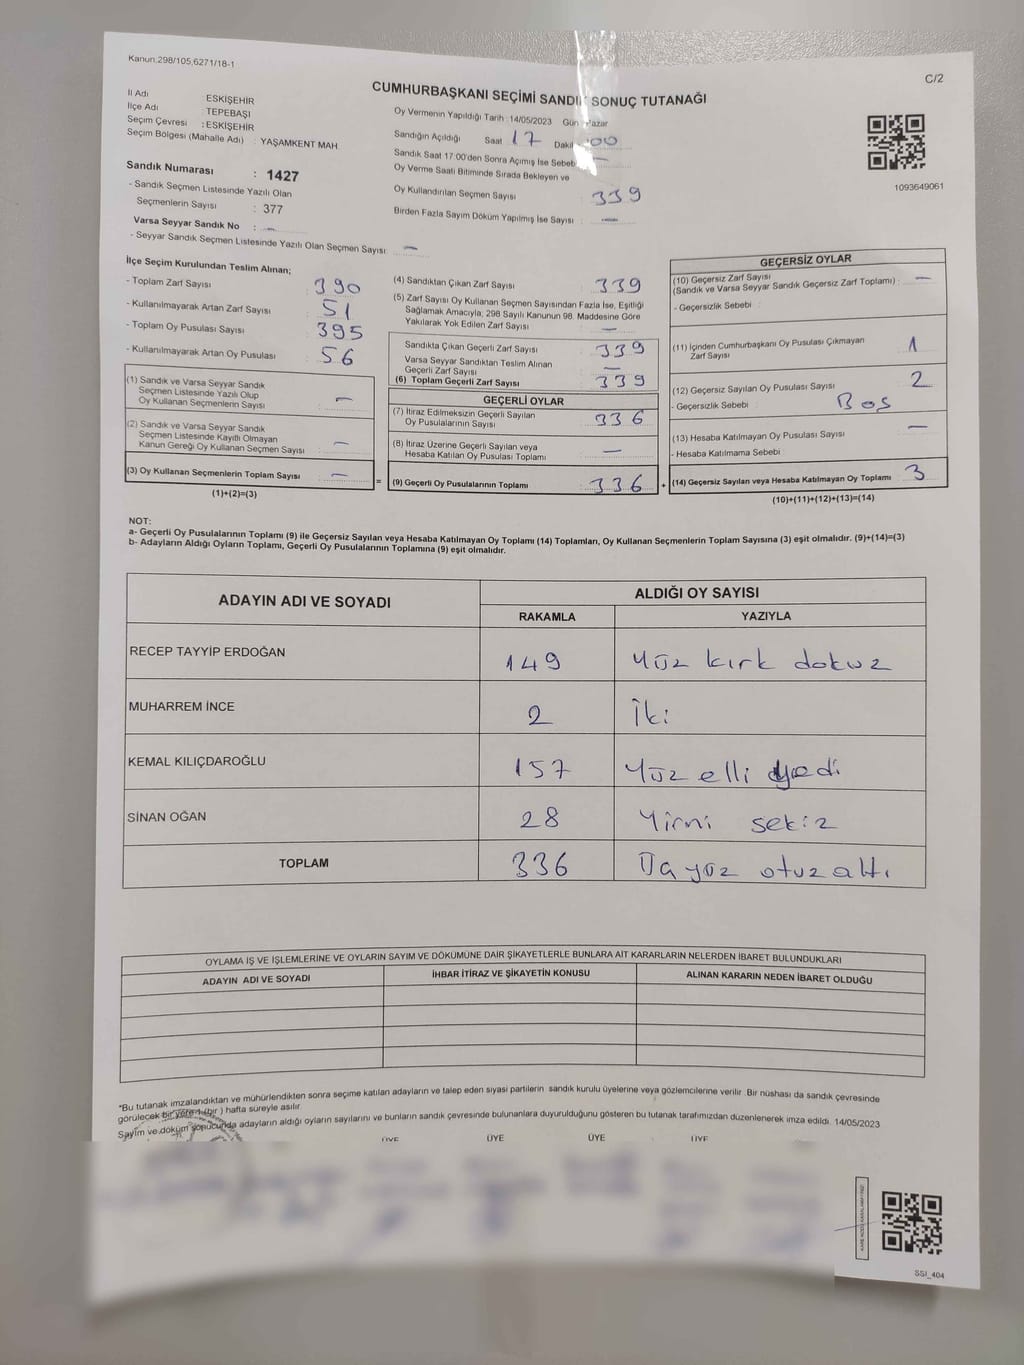 Kanun:298/105,6271/18-1
C/2
CUMHURBAŞKANI SEÇİMİ SANDIK SONUÇ TUTANAĞI
İl Adı ESKİŞEHİR
İlçe Adı : TEPEBAŞI
Seçim Çevresi : ESKİŞEHİR
Seçim Bölgesi (Mahalle Adı) : YAŞAMKENT MAH
Oy Vermenin Yapıldığı Tarih :14/05/2023 Gün Pazar
Sandığın Açıldığı Saat 17 Dakika 00
Sandık Saat 17:00'den Sonra Açımış İse Sebebi —
Oy Verme Saati Bitiminde Sırada Bekleyen ve
Oy Kullandırılan Seçmen Sayısı 339
Birden Fazla Sayım Döküm Yapılmış İse Sayısı : —
1093649061
Sandık Numarası : 1427
- Sandık Seçmen Listesinde Yazılı Olan
Seçmenlerin Sayısı : 377
Varsa Seyyar Sandık No : —
- Seyyar Sandık Seçmen Listesinde Yazılı Olan Seçmen Sayısı: —
İlçe Seçim Kurulundan Teslim Alınan;
- Toplam Zarf Sayısı : 390
- Kullanılmayarak Artan Zarf Sayısı : 51
- Toplam Oy Pusulası Sayısı : 395
- Kullanılmayarak Artan Oy Pusulası : 56
(1) Sandık ve Varsa Seyyar Sandık
Seçmen Listesinde Yazılı Olup
Oy Kullanan Seçmenlerin Sayısı : —
(2) Sandık ve Varsa Seyyar Sandık
Seçmen Listesinde Kayıtlı Olmayan
Kanun Gereği Oy Kullanan Seçmen Sayısı : —
(3) Oy Kullanan Seçmenlerin Toplam Sayısı : —
(1)+(2)=(3)
=
(4) Sandıktan Çıkan Zarf Sayısı : 339
(5) Zarf Sayısı Oy Kullanan Seçmen Sayısından Fazla İse, Eşitliği
Sağlamak Amacıyla; 298 Sayılı Kanunun 98. Maddesine Göre
Yakılarak Yok Edilen Zarf Sayısı : —
Sandıkta Çıkan Geçerli Zarf Sayısı : 339
Varsa Seyyar Sandıktan Teslim Alınan
Geçerli Zarf Sayısı : —
(6) Toplam Geçerli Zarf Sayısı : 339
GEÇERLİ OYLAR
(7) İtiraz Edilmeksizin Geçerli Sayılan
Oy Pusulalarının Sayısı : 336
(8) İtiraz Üzerine Geçerli Sayılan veya
Hesaba Katılan Oy Pusulası Toplamı : —
(9) Geçerli Oy Pusulalarının Toplamı : 336
+
GEÇERSİZ OYLAR
(10) Geçersiz Zarf Sayısı
(Sandık ve Varsa Seyyar Sandık Geçersiz Zarf Toplamı) : —
- Geçersizlik Sebebi :
(11) İçinden Cumhurbaşkanı Oy Pusulası Çıkmayan
Zarf Sayısı : 1
(12) Geçersiz Sayılan Oy Pusulası Sayısı : 2
- Geçersizlik Sebebi : Boş
(13) Hesaba Katılmayan Oy Pusulası Sayısı : —
- Hesaba Katılmama Sebebi
(14) Geçersiz Sayılan veya Hesaba Katılmayan Oy Toplamı : 3
(10)+(11)+(12)+(13)=(14)
NOT:
a- Geçerli Oy Pusulalarının Toplamı (9) ile Geçersiz Sayılan veya Hesaba Katılmayan Oy Toplamı (14) Toplamları, Oy Kullanan Seçmenlerin Toplam Sayısına (3) eşit olmalıdır. (9)+(14)=(3)
b- Adayların Aldığı Oyların Toplamı, Geçerli Oy Pusulalarının Toplamına (9) eşit olmalıdır.
ADAYIN ADI VE SOYADI ALDIĞI OY SAYISI
RAKAMLA YAZIYLA
RECEP TAYYİP ERDOĞAN 149 Yüz kırk dokuz
MUHARREM İNCE 2 İki
KEMAL KILIÇDAROĞLU 157 Yüz elli yedi
SİNAN OĞAN 28 Yirmi sekiz
TOPLAM 336 Üç yüz otuz altı
OYLAMA İŞ VE İŞLEMLERİNE VE OYLARIN SAYIM VE DÖKÜMÜNE DAİR ŞİKAYETLERLE BUNLARA AİT KARARLARIN NELERDEN İBARET BULUNDUKLARI
ADAYIN ADI VE SOYADI İHBAR İTİRAZ VE ŞİKAYETİN KONUSU ALINAN KARARIN NEDEN İBARET OLDUĞU
*Bu tutanak imzalandıktan ve mühürlendikten sonra seçime katılan adayların ve talep eden siyasi partilerin sandık kurulu üyelerine veya gözlemcilerine verilir. Bir nüshası da sandık çevresinde
görülecek bir yere 1 (bir ) hafta süreyle asılır.
Sayım ve döküm sonucunda adayların aldığı oyların sayılarını ve bunların sandık çevresinde bulunanlara duyurulduğunu gösteren bu tutanak tarafımızdan düzenlenerek imza edildi. 14/05/2023
ÜYE ÜYE ÜYE ÜYE
SSI_404